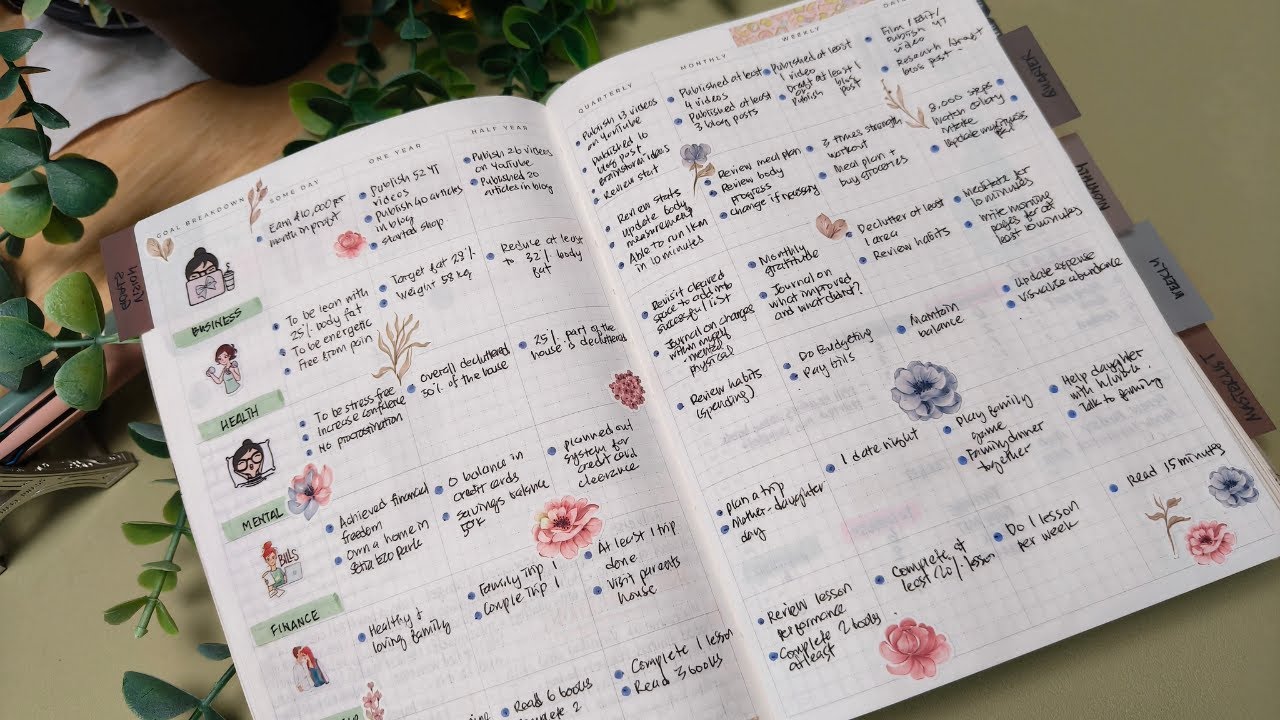 GOAL BREAKDOWN
SOME DAY
ONE YEAR
HALF YEAR
BUSINESS
• Earn $10,000 per
month in profit
• Publish 52 YT
videos
• publish 40 articles
in blog
• started shop
• Publish 26 videos
on YouTube
• Published 20
articles in blog
HEALTH
• To be lean with
25% body fat
• To be energetic
• Free from pain
• Target fat 29%
• Weight 53 kg
• Reduce at least
to 32% body
fat
MENTAL
• To be stress-free
• Increase confidence
• No procrastination
• overall decluttered
50% of the house
• 25% part of the
house is decluttered
BILLS
FINANCE
• Achieved financial
freedom
• Own a home in
• 0 balance in
credit cards
• savings balance
50k
• planned out
system for
credit card
clearance
• Healthy &
loving family
• Family Trip 1
• Couple Trip 1
• At least 1 trip
done
• Visit parents
house
• Read 6 books
• Complete 1 lesson
• Read 3 books
QUARTERLY
MONTHLY
WEEKLY
• Publish 13 videos
on YouTube
• published 10
blog post
• brainstorm ideas
• Review start
• Published at least
4 videos
• Published at least
3 blog posts
• Published at least
1 video
• Draft at least 1
or
publish post
• Film / Edit /
Publish YT
video
• Research / draft
blog post
• Review starts
• update body
measurement
• Able to run 1km
in 10 minutes
• Review meal plan
• Review body
progress
• change if necessary
• 3 times strength
workout
• Meal plan +
buy groceries
• 8,000 steps
• Watch calory
intake
• Revisit cleared
space to add into
successful list
• Journal on changes
within myself
- mental
- physical
• Monthly
gratitude
• Journal on
what improved
and what didn't?
• Declutter at least
1 area
• Review habits
• Meditate for
10 minutes
• write morning
pages for at
least 10 minutes
• Review habits
(spending)
• Do Budgeting
• Pay bills
• Maintain
balance
• Update expense
• Visualise abundance
• plan a trip
• Mother-daughter
day
• 1 date night
• Play family
game
• Family dinner
together
• Help daughter
with
• Talk to family
• Review lesson
performance
• Complete 2 books
atleast
• Complete at
least 20% lesson
• Do 1 lesson
per week
• Read 15 minutes
VISION
GOALS
QUARTERLY
MONTHLY
WEEKLY
MASTERLIST